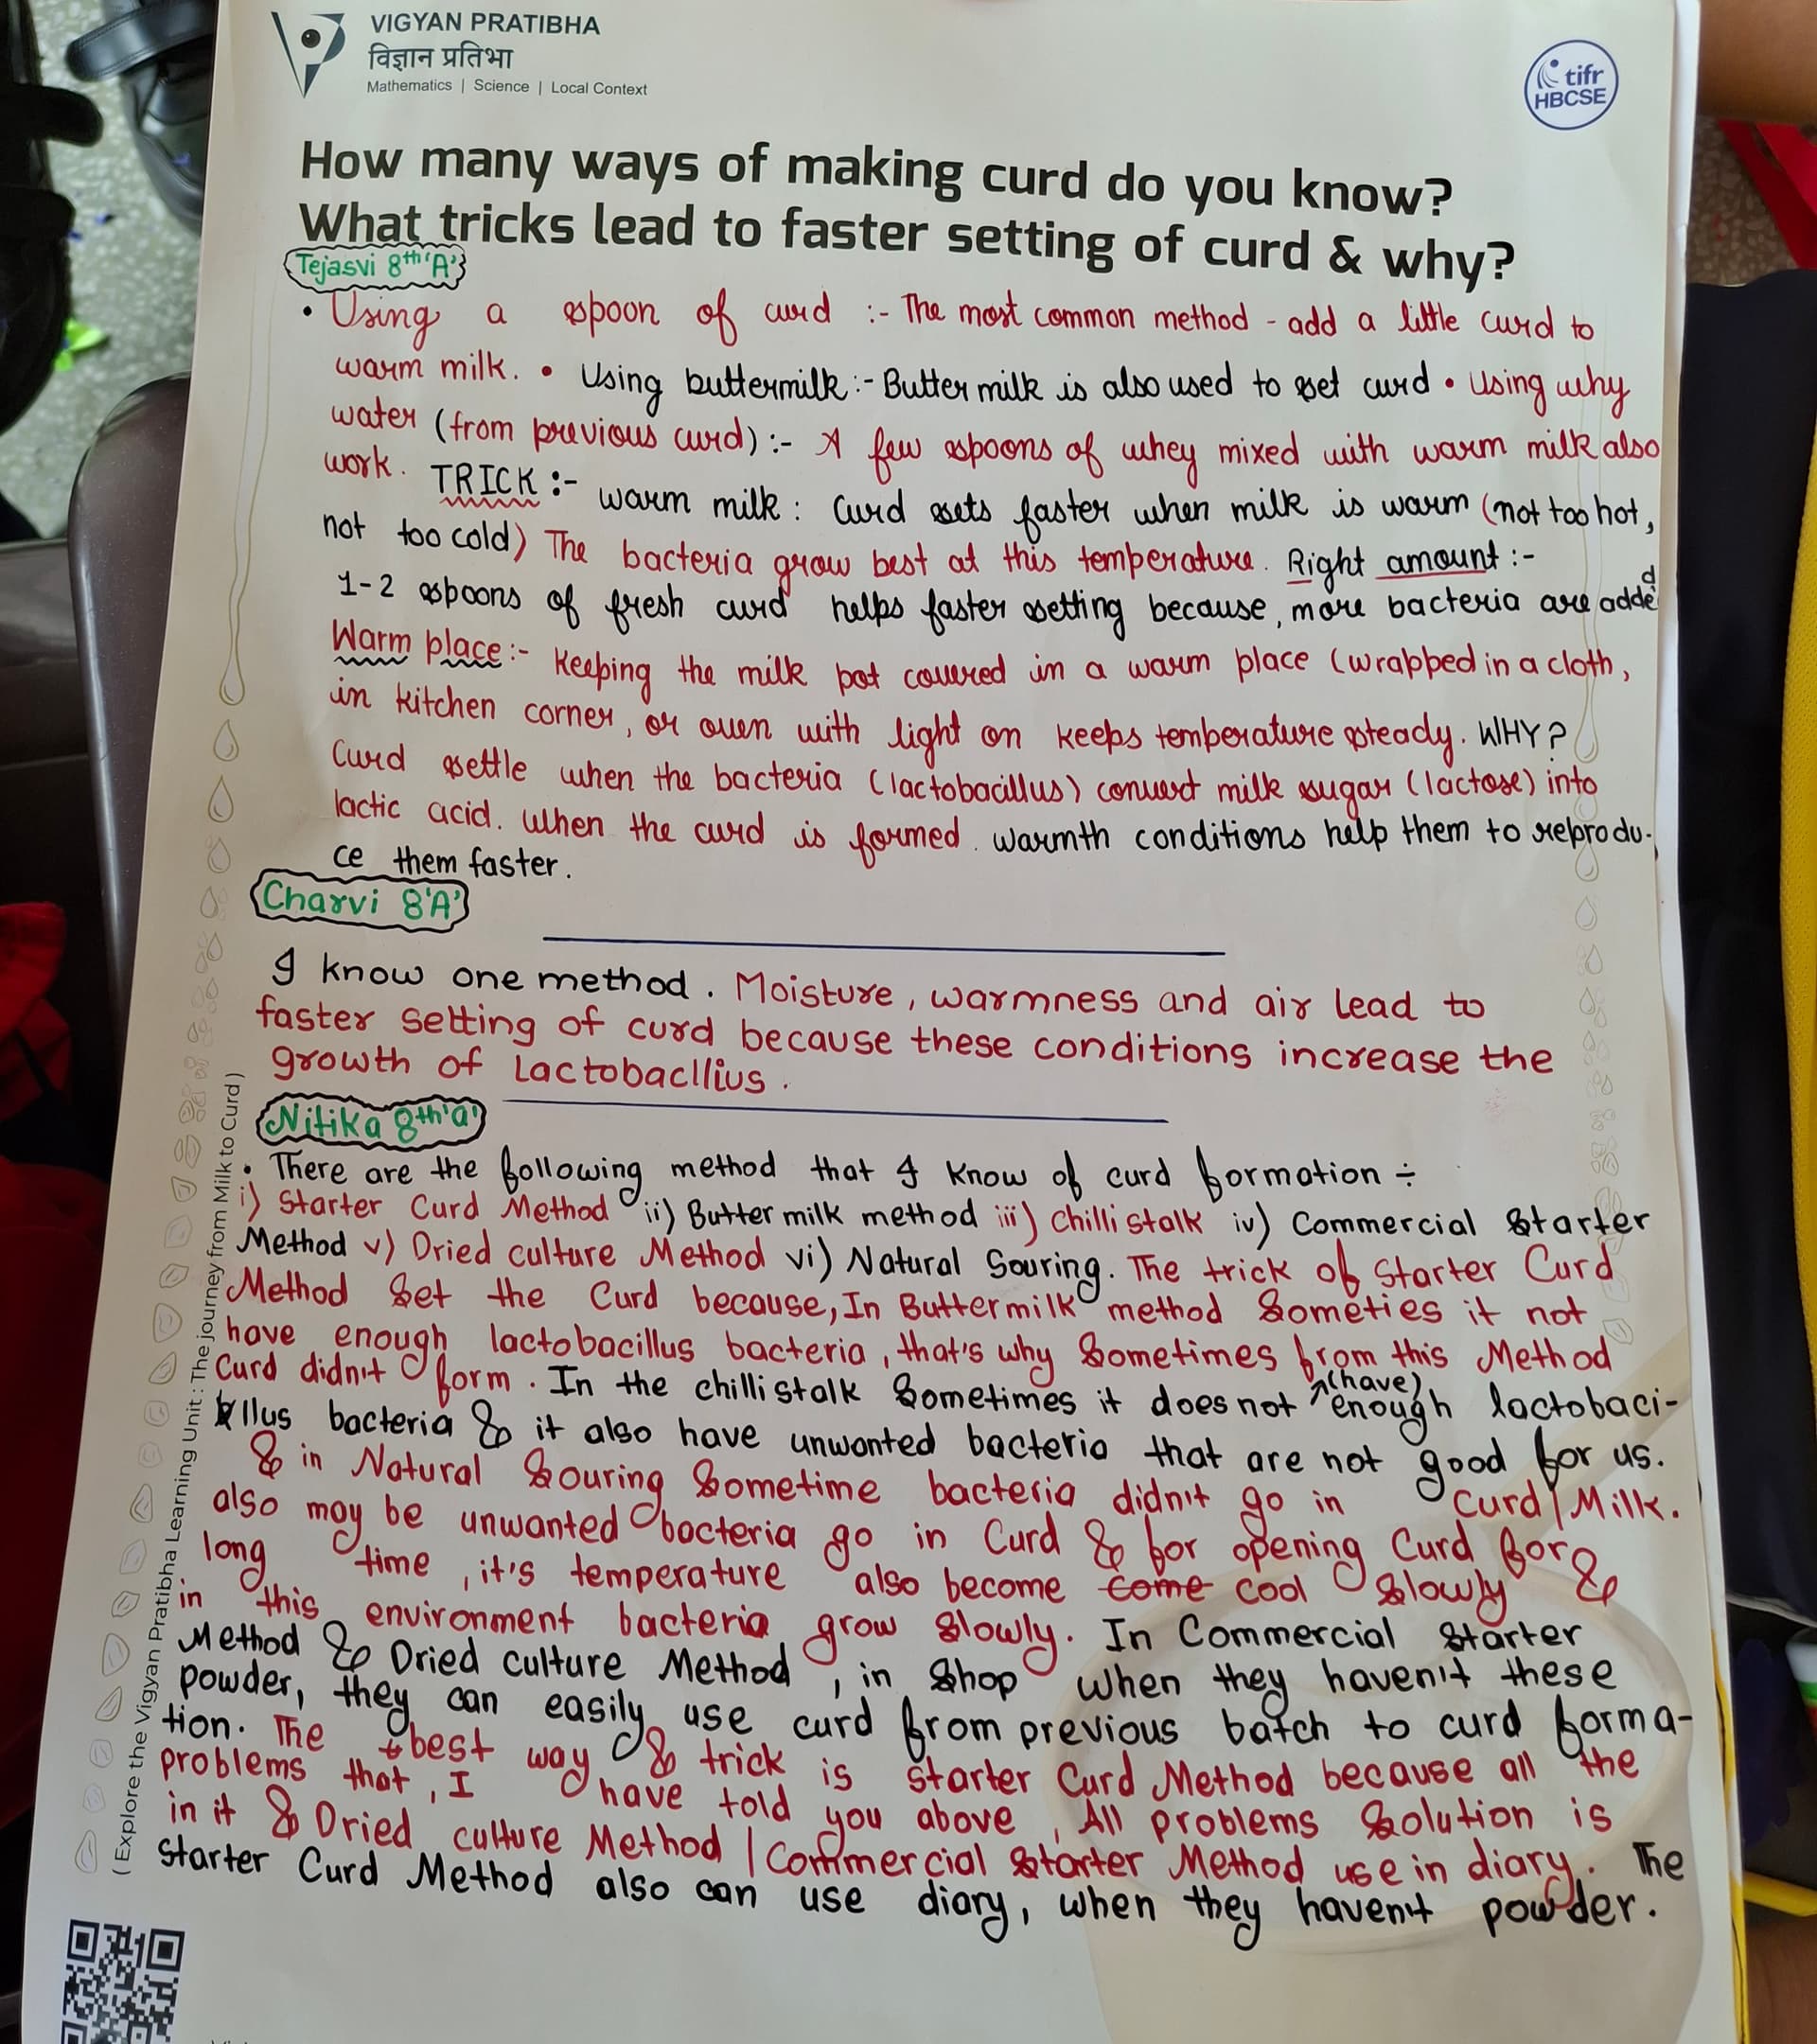 VIGYAN PRATIBHA
विज्ञान प्रतिभा
Mathematics | Science | Local Context
tifr
HBCSE
How many ways of making curd do you know?
What tricks lead to faster setting of curd & why?
Tejasvi 8th 'A'
• Using a spoon of curd :- The most common method - add a little curd to
warm milk. • Using buttermilk :- Butter milk is also used to set curd • Using why
water (from previous curd) :- A few spoons of whey mixed with warm milk also
work. TRICK :- warm milk : Curd sets faster when milk is warm (not too hot,
not too cold) The bacteria grow best at this temperature. Right amount :-
1-2 spoons of fresh curd helps faster setting because, more bacteria are added
Warm place :- Keeping the milk pot covered in a warm place (wrapped in a cloth,
in kitchen corner, or oven with light on keeps temperature steady. WHY?
Curd settle when the bacteria (lactobacillus) convert milk sugar (lactose) into
lactic acid. When the curd is formed. warmth conditions help them to reprodu-
ce them faster.
Charvi 8'A'
I know one method. Moisture, warmness and air lead to
faster setting of curd because these conditions increase the
growth of Lactobacllius.
Nitika 8th 'a'
• There are the following method that I know of curd formation ÷
i) Starter Curd Method ii) Butter milk method iii) chilli stalk iv) Commercial Starter
Method v) Dried culture Method vi) Natural Souring. The trick of Starter Curd
Method Set the Curd because, In Buttermilk method Someties it not
have enough lactobacillus bacteria, that's why Sometimes from this Method
Curd didn't form. In the chilli stalk Sometimes it does not (have) enough lactobaci-
llus bacteria & it also have unwanted bacteria that are not good for us.
& in Natural Souring Sometime bacteria didn't go in Curd | Milk.
also may be unwanted bacteria go in Curd & for opening Curd for
long time, it's temperature also become come cool Slowly &
in this environment bacteria grow Slowly. In Commercial Starter
Method & Dried culture Method, in Shop when they haven't these
powder, they can easily use curd from previous batch to curd forma-
tion. The best way & trick is Starter Curd Method because all the
problems that, I have told you above, All problems Solution is
in it & Dried culture Method | Commercial Starter Method use in diary. The
Starter Curd Method also can use diary, when they haven't powder.
(Explore the Vigyan Pratibha Learning Unit : The journey from Milk to Curd)